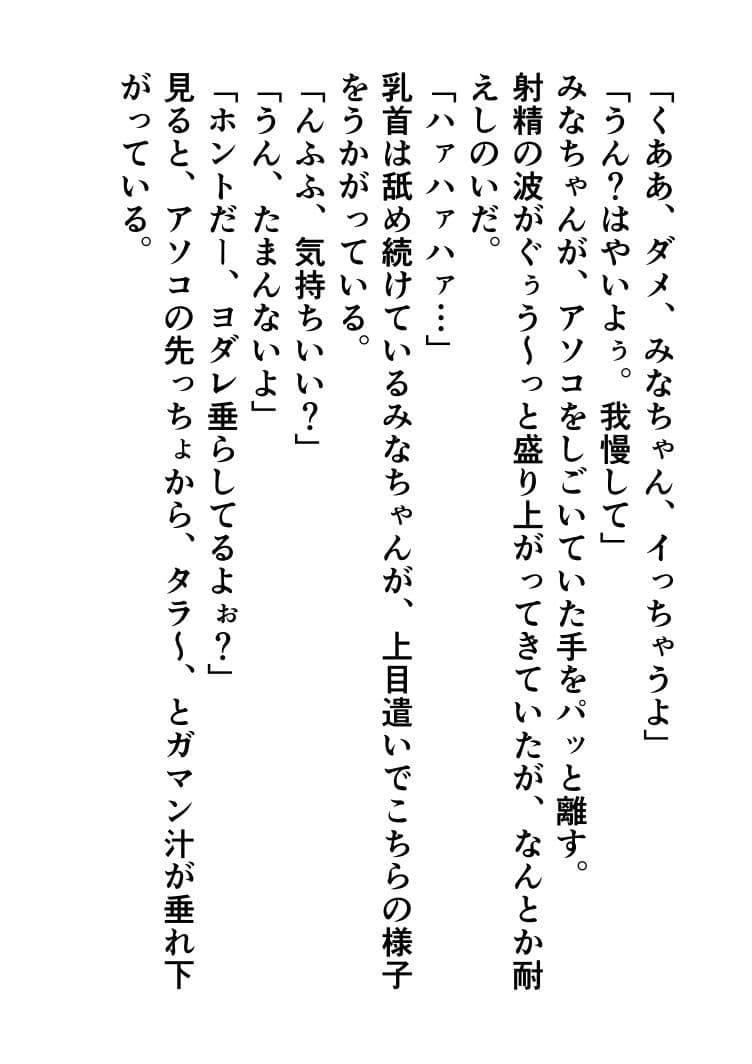 「くああ、ダメ、みなちゃん、イっちゃうよ」
「うん？はやいよぅ。我慢して」
みなちゃんが、アソコをしごいていた手をパッと離す。
射精の波がぐぅう～っと盛り上がってきていたが、なんとか耐
えしのいだ。
「ハァハァハァ…」
乳首は舐め続けているみなちゃんが、上目遣いでこちらの様子
をうかがっている。
「んふふ、気持ちいい？」
「うん、たまんないよ」
「ホントだー、ヨダレ垂らしてるよぉ？」
見ると、アソコの先っちょから、タラ～、とガマン汁が垂れ下
がっている。